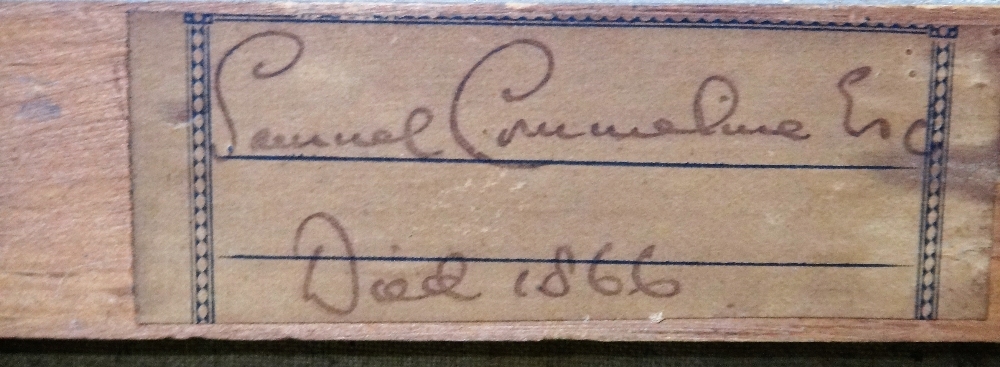 Samuel Commeline Esq
Died 1866